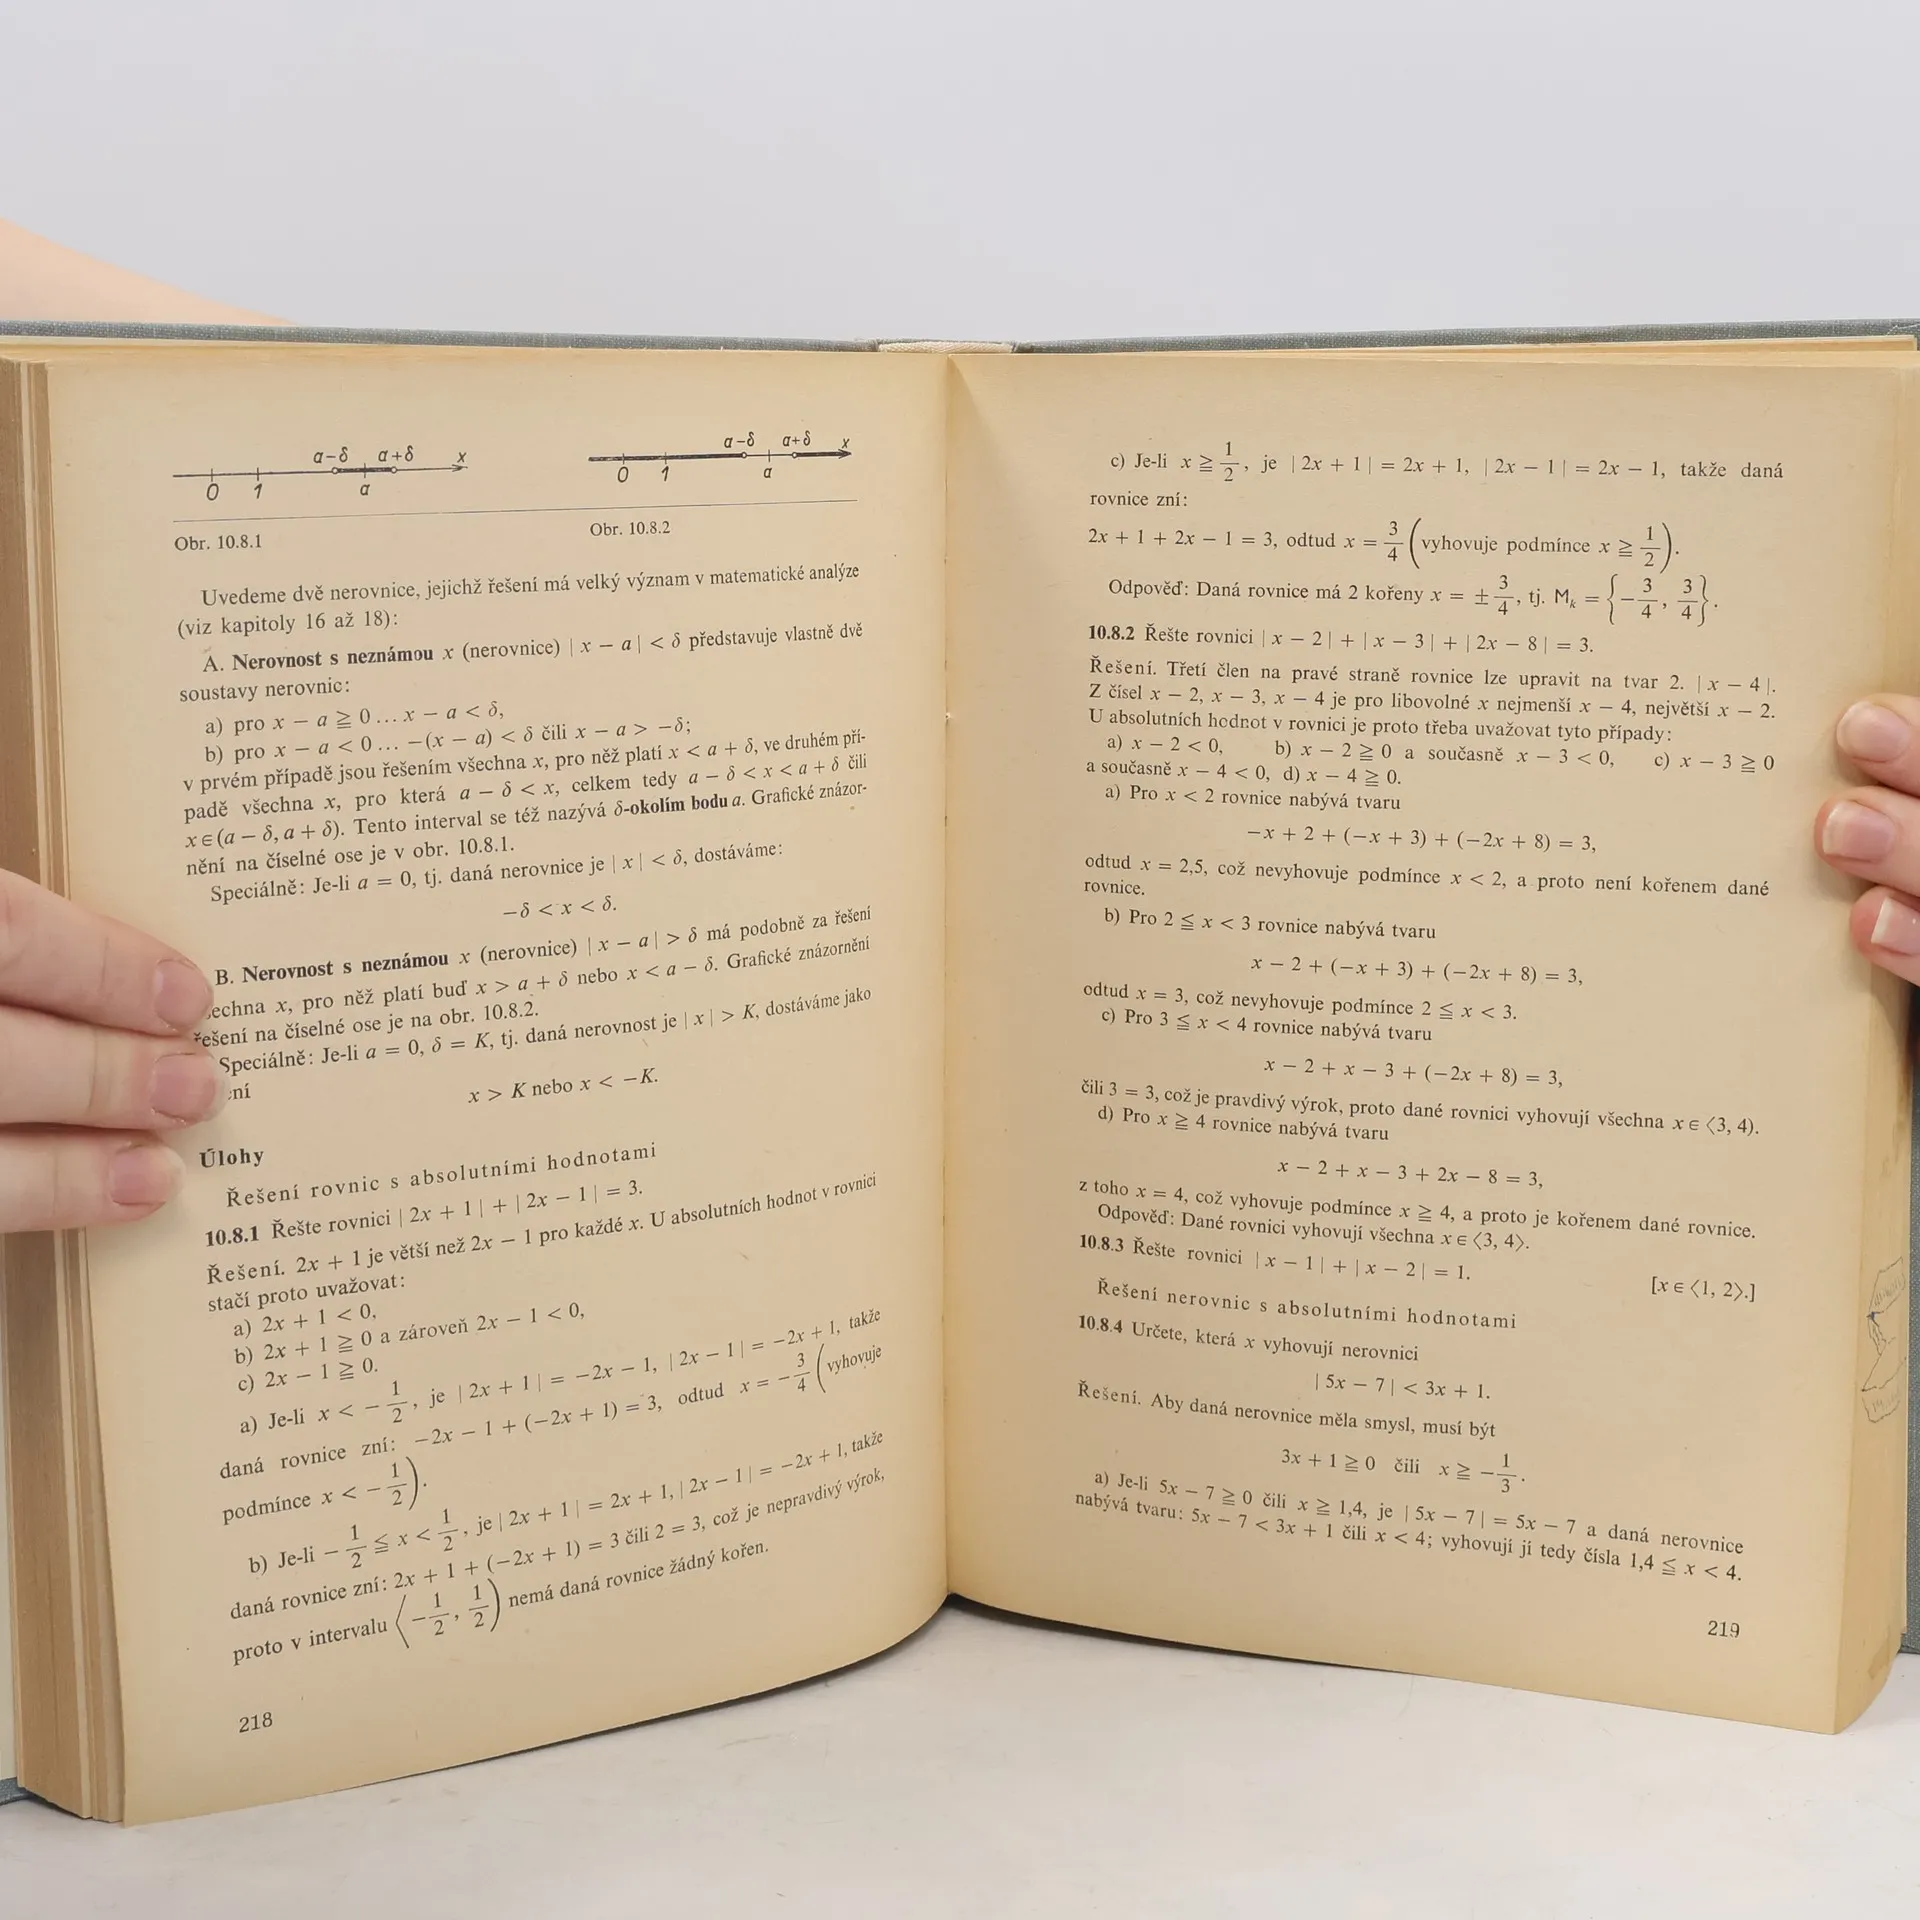 a–δ a+δ x
0 1 a
Obr. 10.8.1
a–δ a+δ x
0 1 a
Obr. 10.8.2
Uvedeme dvě nerovnice, jejichž řešení má velký význam v matematické analýze
(viz kapitoly 16 až 18):
A. Nerovnost s neznámou x (nerovnice) | x − a | < δ představuje vlastně dvě
soustavy nerovnic:
a) pro x − a ≧ 0 ... x − a < δ,
b) pro x − a < 0 ... −(x − a) < δ čili x − a > −δ;
v prvém případě jsou řešením všechna x, pro něž platí x < a + δ, ve druhém pří-
padě všechna x, pro která a − δ < x, celkem tedy a − δ < x < a + δ čili
x ∈ (a − δ, a + δ). Tento interval se též nazývá δ-okolím bodu a. Grafické znázor-
nění na číselné ose je v obr. 10.8.1.
Speciálně: Je-li a = 0, tj. daná nerovnice je | x | < δ, dostáváme:
−δ < x < δ.
B. Nerovnost s neznámou x (nerovnice) | x − a | > δ má podobně za řešení
echna x, pro něž platí buď x > a + δ nebo x < a − δ. Grafické znázornění
řešení na číselné ose je na obr. 10.8.2.
Speciálně: Je-li a = 0, δ = K, tj. daná nerovnost je | x | > K, dostáváme jako
ení
x > K nebo x < −K.
Úlohy
Řešení rovnic s absolutními hodnotami
10.8.1 Řešte rovnici | 2x + 1 | + | 2x − 1 | = 3.
Řešení. 2x + 1 je větší než 2x − 1 pro každé x. U absolutních hodnot v rovnici
stačí proto uvažovat:
a) 2x + 1 < 0,
b) 2x + 1 ≧ 0 a zároveň 2x − 1 < 0,
c) 2x − 1 ≧ 0.
a) Je-li x < −1/2, je | 2x + 1 | = −2x − 1, | 2x − 1 | = −2x + 1, takže
daná rovnice zní: −2x − 1 + (−2x + 1) = 3, odtud x = −3/4 (vyhovuje
podmínce x < −1/2).
b) Je-li −1/2 ≦ x < 1/2, je | 2x + 1 | = 2x + 1, | 2x − 1 | = −2x + 1, takže
daná rovnice zní: 2x + 1 + (−2x + 1) = 3 čili 2 = 3, což je nepravdivý výrok,
proto v intervalu ⟨−1/2, 1/2) nemá daná rovnice žádný kořen.
218
c) Je-li x ≧ 1/2, je | 2x + 1 | = 2x + 1, | 2x − 1 | = 2x − 1, takže daná
rovnice zní:
2x + 1 + 2x − 1 = 3, odtud x = 3/4 (vyhovuje podmínce x ≧ 1/2).
Odpověď: Daná rovnice má 2 kořeny x = ±3/4, tj. Mₖ = {−3/4, 3/4}.
10.8.2 Řešte rovnici | x − 2 | + | x − 3 | + | 2x − 8 | = 3.
Řešení. Třetí člen na pravé straně rovnice lze upravit na tvar 2. | x − 4 |.
Z čísel x − 2, x − 3, x − 4 je pro libovolné x nejmenší x − 4, největší x − 2.
U absolutních hodnot v rovnici je proto třeba uvažovat tyto případy:
a) x − 2 < 0, b) x − 2 ≧ 0 a současně x − 3 < 0, c) x − 3 ≧ 0
a současně x − 4 < 0, d) x − 4 ≧ 0.
a) Pro x < 2 rovnice nabývá tvaru
−x + 2 + (−x + 3) + (−2x + 8) = 3,
odtud x = 2,5, což nevyhovuje podmínce x < 2, a proto není kořenem dané
rovnice.
b) Pro 2 ≦ x < 3 rovnice nabývá tvaru
x − 2 + (−x + 3) + (−2x + 8) = 3,
odtud x = 3, což nevyhovuje podmínce 2 ≦ x < 3.
c) Pro 3 ≦ x < 4 rovnice nabývá tvaru
x − 2 + x − 3 + (−2x + 8) = 3,
čili 3 = 3, což je pravdivý výrok, proto dané rovnici vyhovují všechna x ∈ ⟨3, 4).
d) Pro x ≧ 4 rovnice nabývá tvaru
x − 2 + x − 3 + 2x − 8 = 3,
z toho x = 4, což vyhovuje podmínce x ≧ 4, a proto je kořenem dané rovnice.
Odpověď: Dané rovnici vyhovují všechna x ∈ ⟨3, 4⟩.
10.8.3 Řešte rovnici | x − 1 | + | x − 2 | = 1.
[x ∈ ⟨1, 2⟩.]
Řešení nerovnic s absolutními hodnotami
10.8.4 Určete, která x vyhovují nerovnici
| 5x − 7 | < 3x + 1.
Řešení. Aby daná nerovnice měla smysl, musí být
3x + 1 ≧ 0 čili x ≧ −1/3.
a) Je-li 5x − 7 ≧ 0 čili x ≧ 1,4, je | 5x − 7 | = 5x − 7 a daná nerovnice
nabývá tvaru: 5x − 7 < 3x + 1 čili x < 4; vyhovují jí tedy čísla 1,4 ≦ x < 4.
219